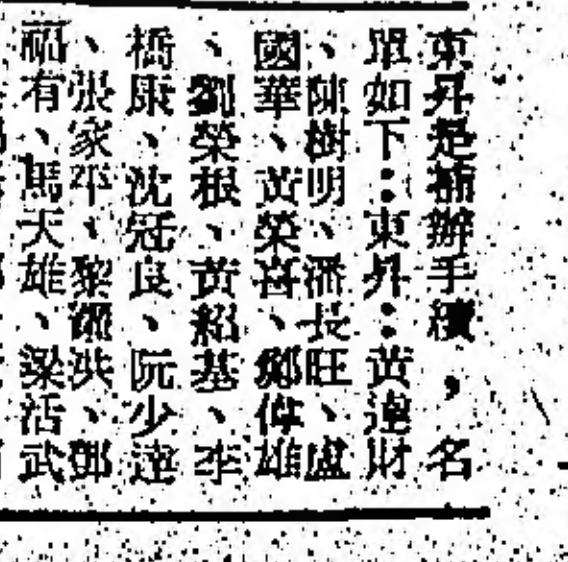 東昇是補辦手續，名
單如下：東昇：黃達財
、陳樹明、潘長旺、盧
國華、黃榮喜、鄭偉雄
、劉榮根、黃紹基、李
橋康、沈冠良、阮少達
、張家平、黎耀洪、鄧
福有、馬天雄、梁活武